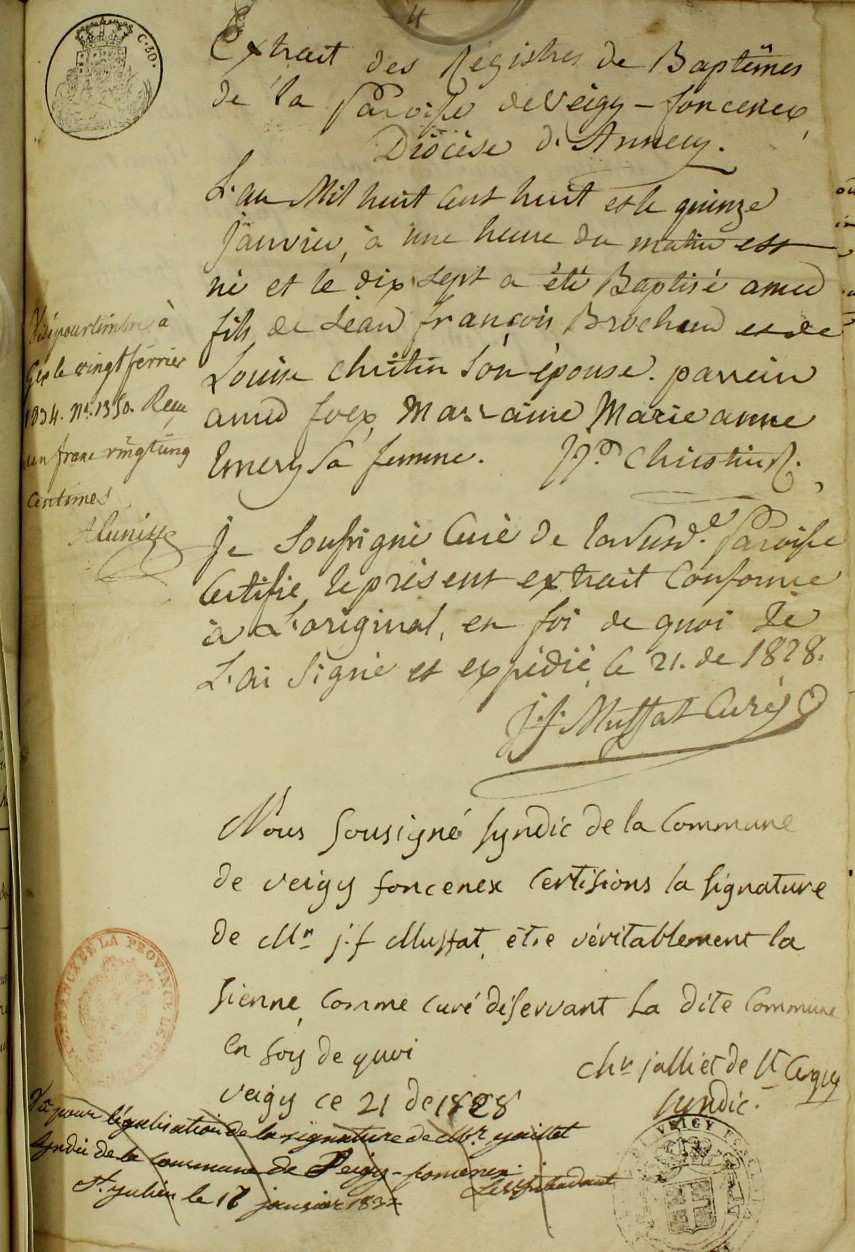 4
C. 30.
Extrait des Régistres de Baptêmes
de la Paroisse de Veigy-foncenex,
Diocèse d'Annecy.
L'an Mil huit cent huit et le quinze
Janvier, à une heure du matin est
né et le dix sept a été Baptisé amed
fils de Jean françois Brochud et de
Louise Christin Son épouse. parrein
amed foëx, Marraine Marie anne
Emery Sa femme. Christin R.
Je Soussigné Curé de la Susd.e Paroisse
Certifie le présent extrait Conforme
à L'original, en foi de quoi Je
L'ai Signé et expédié, ce 21. de 1828.
J. f. Muffat Curé
Visé pour timbre à
Gex le vingt février
1834. N.o 1350. Reçu
un franc vingt cinq
Centimes
Nous Sousigné Syndic de la Commune
de veigy foncenex Certifions la Signature
de Mr. j. f Muffat, etre véritablement la
Sienne, Comme curé désservant la dite Commune
en foy de quoi
veigy ce 21 de 1828
chr jalliet de St Cergue
Syndic.
Vu pour légalisation de la signature de Mr. jaillet
Syndic de la Commune de Veigy-foncenex.
St. julien le 17 janvier 183
L'intendant
LA PROVINCE DE
VEIGY